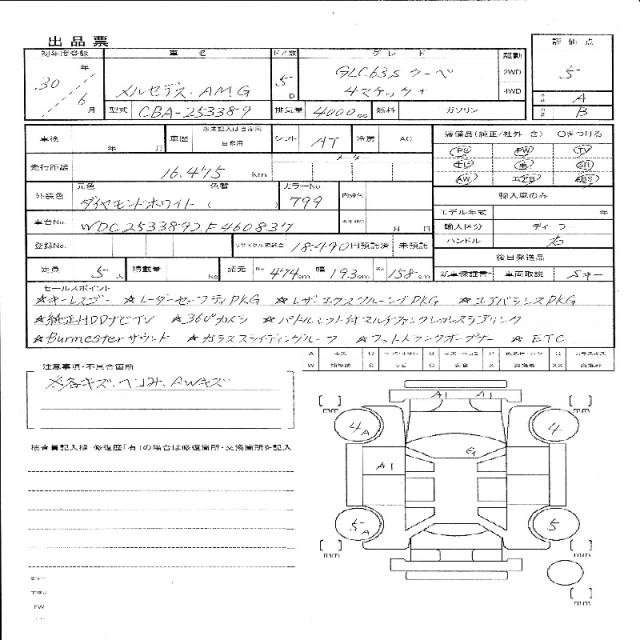 出品票
初年度登録 車名 ドア数 グレード 駆動 評価点
30 年 6 月 メルセデス.AMG 5 D GLC63S クーペ 2WD 5
4マチック+ 4WD A
型式 CBA-253389 排気量 4000 cc 燃料 ガソリン B
車検 年 月 車歴 自家用 シフト AT 冷房 AC 装備品(純正/社外 含) ○をつける
PS PW TV
走行距離 16,475 km
AW
外装色 元色 ダイヤモンドホワイト ( 色替 ) カラーNo 799 内装色 輸入車のみ
モデル年式 年
車台No. WDC2533892F460837 月 日 輸入区分 ディーラ
ハンドル 右
登録No. リサイクル預託金 18,490円預託済 未預託 後日発送品
定員 5 人 積載量 KG 諸元 長 474cm 幅 193cm 高 158cm 新車保証書 車両取説
セールスポイント
☆キーレスゴー ☆レーダーセーフティPKG ☆レザーエクスクルーシブPKG ☆エアバランスPKG
☆純正HDDナビTV ☆360°カメラ ☆パドルシフト付マルチファンクションステアリング
☆Burmesterサウンド ☆ガラススライディングルーフ ☆フットトランクオープナー ☆ETC
注意事項・不具合箇所
各キズ.ヘコミ.AWキズ
検査員記入欄 修復歴「有」の場合は修復箇所・交換箇所を記入
A1 A1
4A 4
A1
5A 5
mm mm
mm mm
mm